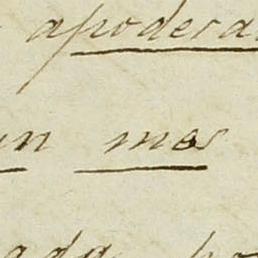 apodera
un mas
ada po